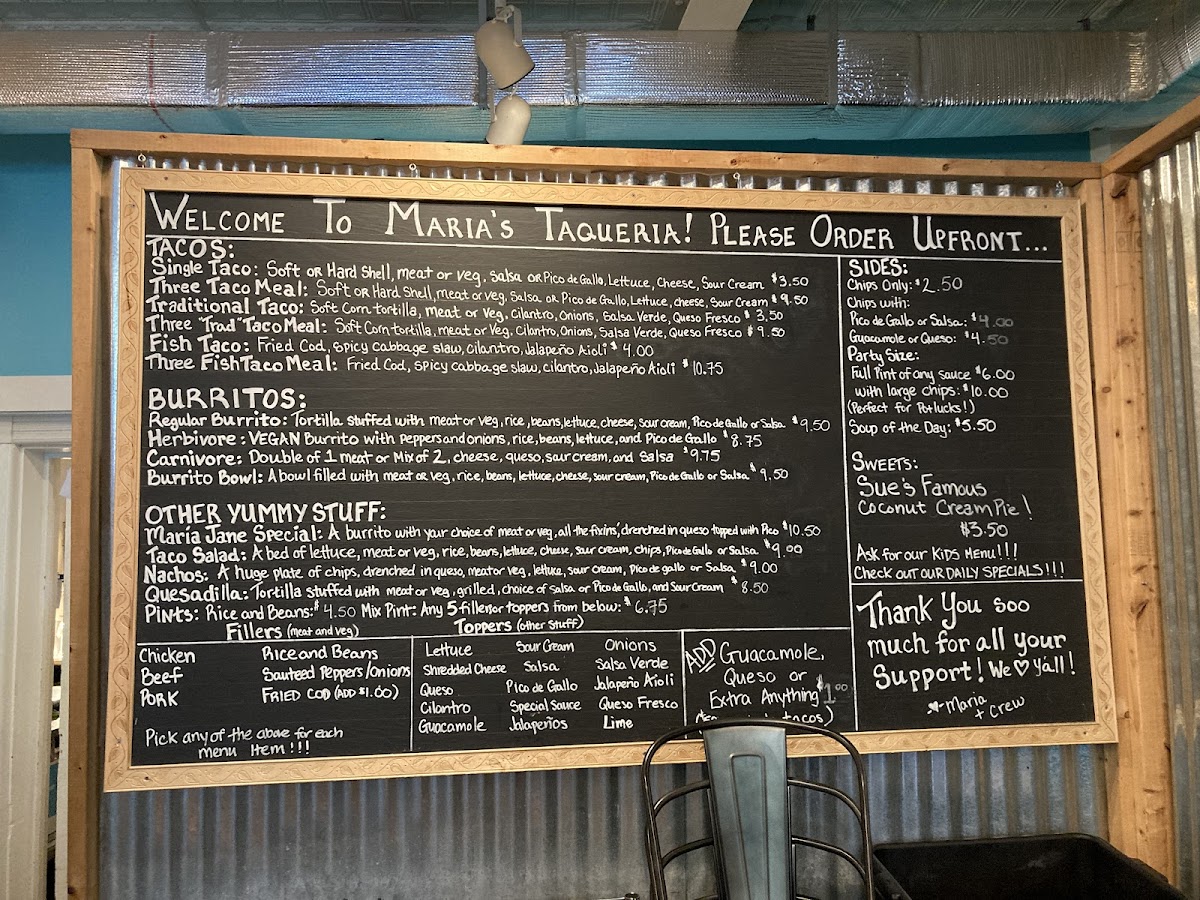 WELCOME TO MARIA'S TAQUERIA! PLEASE ORDER UPFRONT...
TACOS:
Single Taco: Soft or Hard Shell, meat or veg, salsa or Pico de Gallo, Lettuce, Cheese, Sour Cream $3.50
Three Taco Meal: Soft or Hard Shell, meat or veg, Salsa or Pico de Gallo, Lettuce, cheese, Sour Cream $9.50
Traditional Taco: Soft Corn tortilla, meat or veg, cilantro, Onions, Salsa Verde, Queso Fresco $3.50
Three "Trad" Taco Meal: Soft Corn tortilla, meat or veg, Cilantro, Onions, Salsa Verde, Queso Fresco $9.50
Fish Taco: Fried Cod, spicy cabbage slaw, cilantro, Jalapeño Aioli $4.00
Three Fish Taco Meal: Fried Cod, spicy cabbage slaw, cilantro, Jalapeño Aioli $10.75
BURRITOS:
Regular Burrito: Tortilla stuffed with meat or veg, rice, beans, lettuce, cheese, sour cream, Pico de Gallo or Salsa $9.50
Herbivore: VEGAN Burrito with peppers and onions, rice, beans, lettuce, and Pico de Gallo $8.75
Carnivore: Double of 1 meat or Mix of 2, cheese, queso, sour cream, and Salsa $9.75
Burrito Bowl: A bowl filled with meat or veg, rice, beans, lettuce, cheese, sour cream, Pico de Gallo or Salsa $9.50
OTHER YUMMY STUFF:
Maria Jane Special: A burrito with your choice of meat or veg, all the fixins', drenched in queso topped with Pico $10.50
Taco Salad: A bed of lettuce, meat or veg, rice, beans, lettuce, cheese, sour cream, chips, Pico de Gallo or Salsa $9.00
Nachos: A huge plate of chips, drenched in queso, meat or veg, lettuce, sour cream, Pico de gallo or Salsa $9.00
Quesadilla: Tortilla stuffed with meat or veg, grilled, choice of Salsa or Pico de Gallo, and Sour Cream $8.50
Pints: Rice and Beans: $4.50 Mix Pint: Any 5 filler or toppers from below: $6.75
Fillers (meat and veg)
Chicken Rice and Beans
Beef Sauteed Peppers/Onions
Pork FRIED COD (ADD $1.00)
Pick any of the above for each
menu Item!!!
Toppers (other stuff)
Lettuce Sour Cream Onions
Shredded Cheese Salsa Salsa Verde
Queso Pico de Gallo Jalapeño Aioli
Cilantro Special Sauce Queso Fresco
Guacamole Jalapeños Lime
ADD Guacamole,
Queso or
Extra Anything $1.00
tacos)
SIDES:
Chips Only: $2.50
Chips with:
Pico de Gallo or Salsa: $4.00
Guacamole or Queso: $4.50
Party Size:
Full Pint of any sauce $6.00
with large chips: $10.00
(Perfect for Potlucks!)
Soup of the Day: $5.50
SWEETS:
Sue's Famous
Coconut Cream Pie!
$3.50
Ask for our KIDS MENU!!!
Check out OUR DAILY SPECIALS!!!
Thank You soo
much for all your
Support! We ♡ y'all!
Maria
+ Crew